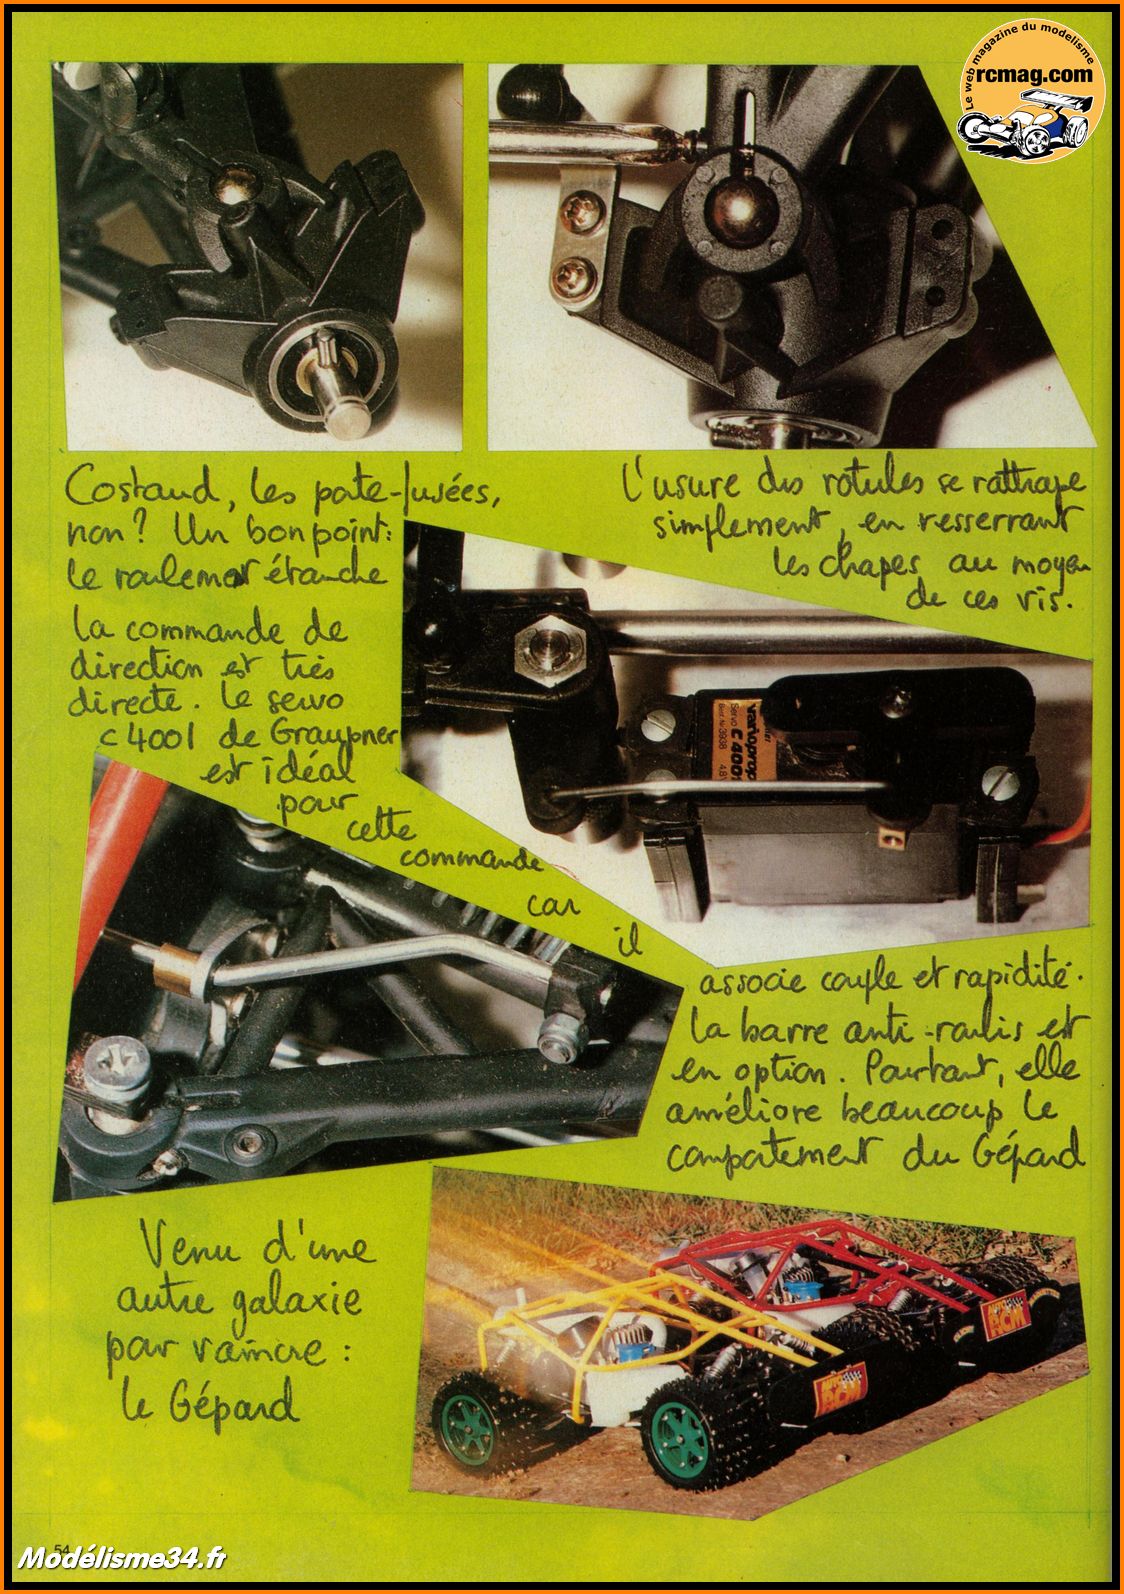 Le web magazine du modelisme
rcmag.com
Costaud, les porte-fusées,
non? Un bon point:
le roulement étanche
L'usure des rotules se rattrape
simplement, en resserrant
les chapes au moyen
de ces vis.
La commande de
direction est très
directe. Le servo
C 4001 de Graupner
est idéal
pour
cette
commande
car
il
associe couple et rapidité.
varioprop
Servo C 4001
Best.-Nr. 3938 4,8V
La barre anti-roulis est
en option. Pourtant, elle
améliore beaucoup le
comportement du Gépard
Venu d'une
autre galaxie
pour vaincre :
le Gépard
AUTO
RCM
AUTO
RCM
54
Modélisme34.fr